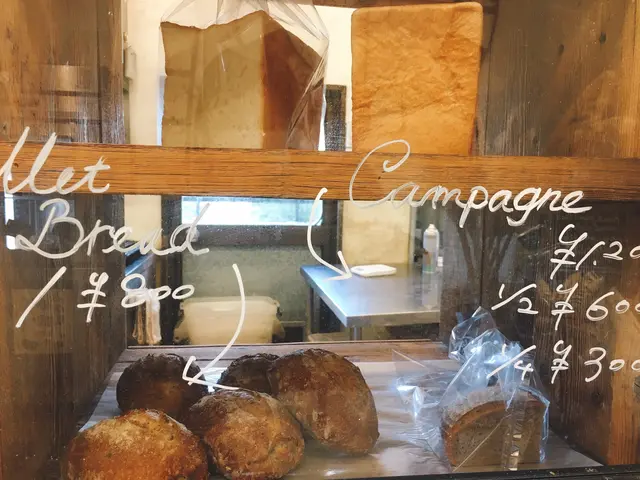 Met
Bread
/ ¥800
Campagne
¥1.20
1/2 ¥600
1/4 ¥300